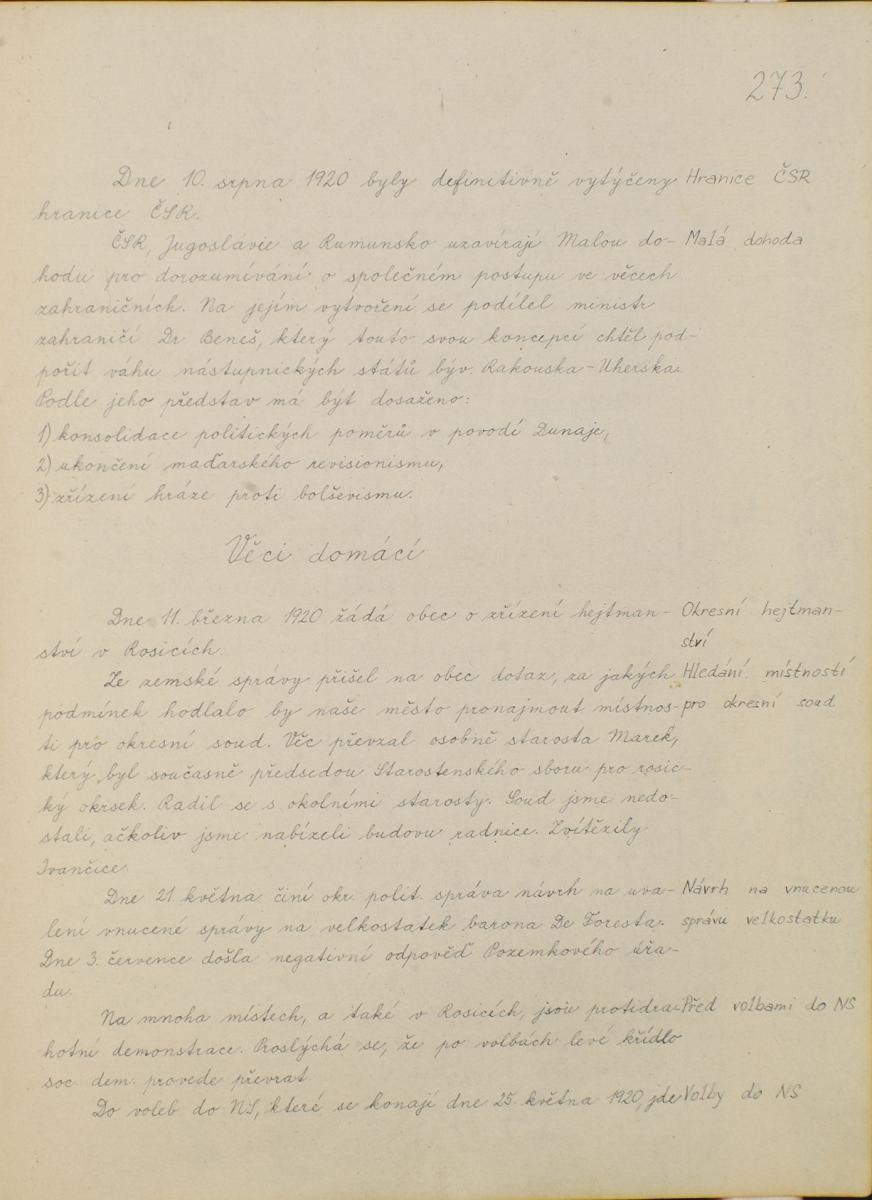 273.
Dne 10. srpna 1920 byly definitivně vytýčeny Hranice ČSR
hranice ČSR.
ČSR, Jugoslávie a Rumunsko uzavírají Malou do- Malá dohoda
hodu pro dorozumívání o společném postupu ve věcech
zahraničních. Na jejím vytvoření se podílel ministr
zahraničí Dr Beneš, který touto svou koncepcí chtěl pod-
pořit váhu nástupnických států býv. Rakouska-Uherska.
Podle jeho představ má být dosaženo:
1) konsolidace politických poměrů v povodí Dunaje,
2) ukončení maďarského revisionismu,
3) zřízení hráze proti bolševismu.
Věci domácí
Dne 11. března 1920 žádá obec o zřízení hejtman- Okresní hejtman-
ství v Rosicích. ství
Ze zemské správy přišel na obec dotaz, za jakých Hledání místností
podmínek hodlalo by naše město pronajmout místnos- pro okresní soud
ti pro okresní soud. Věc převzal osobně starosta Marek,
který byl současně předsedou Starostenského sboru pro rosic-
ký okrsek. Radil se s okolními starosty. Soud jsme nedo-
stali, ačkoliv jsme nabízeli budovu radnice. Zvítězily
Ivančice.
Dne 21. května činí okr. polit. správa návrh na uva- Návrh na vnucenou
lení vnucené správy na velkostatek barona De Foresta. správu velkostatku
Dne 3. července došla negativní odpověď Pozemkového úřa-
du.
Na mnoha místech, a také v Rosicích, jsou protidra- Před volbami do NS
hotní demonstrace. Proslýchá se, že po volbách levé křídlo
soc. dem. provede převrat.
Do voleb do NS, které se konají dne 25. května 1920, jde Volby do NS